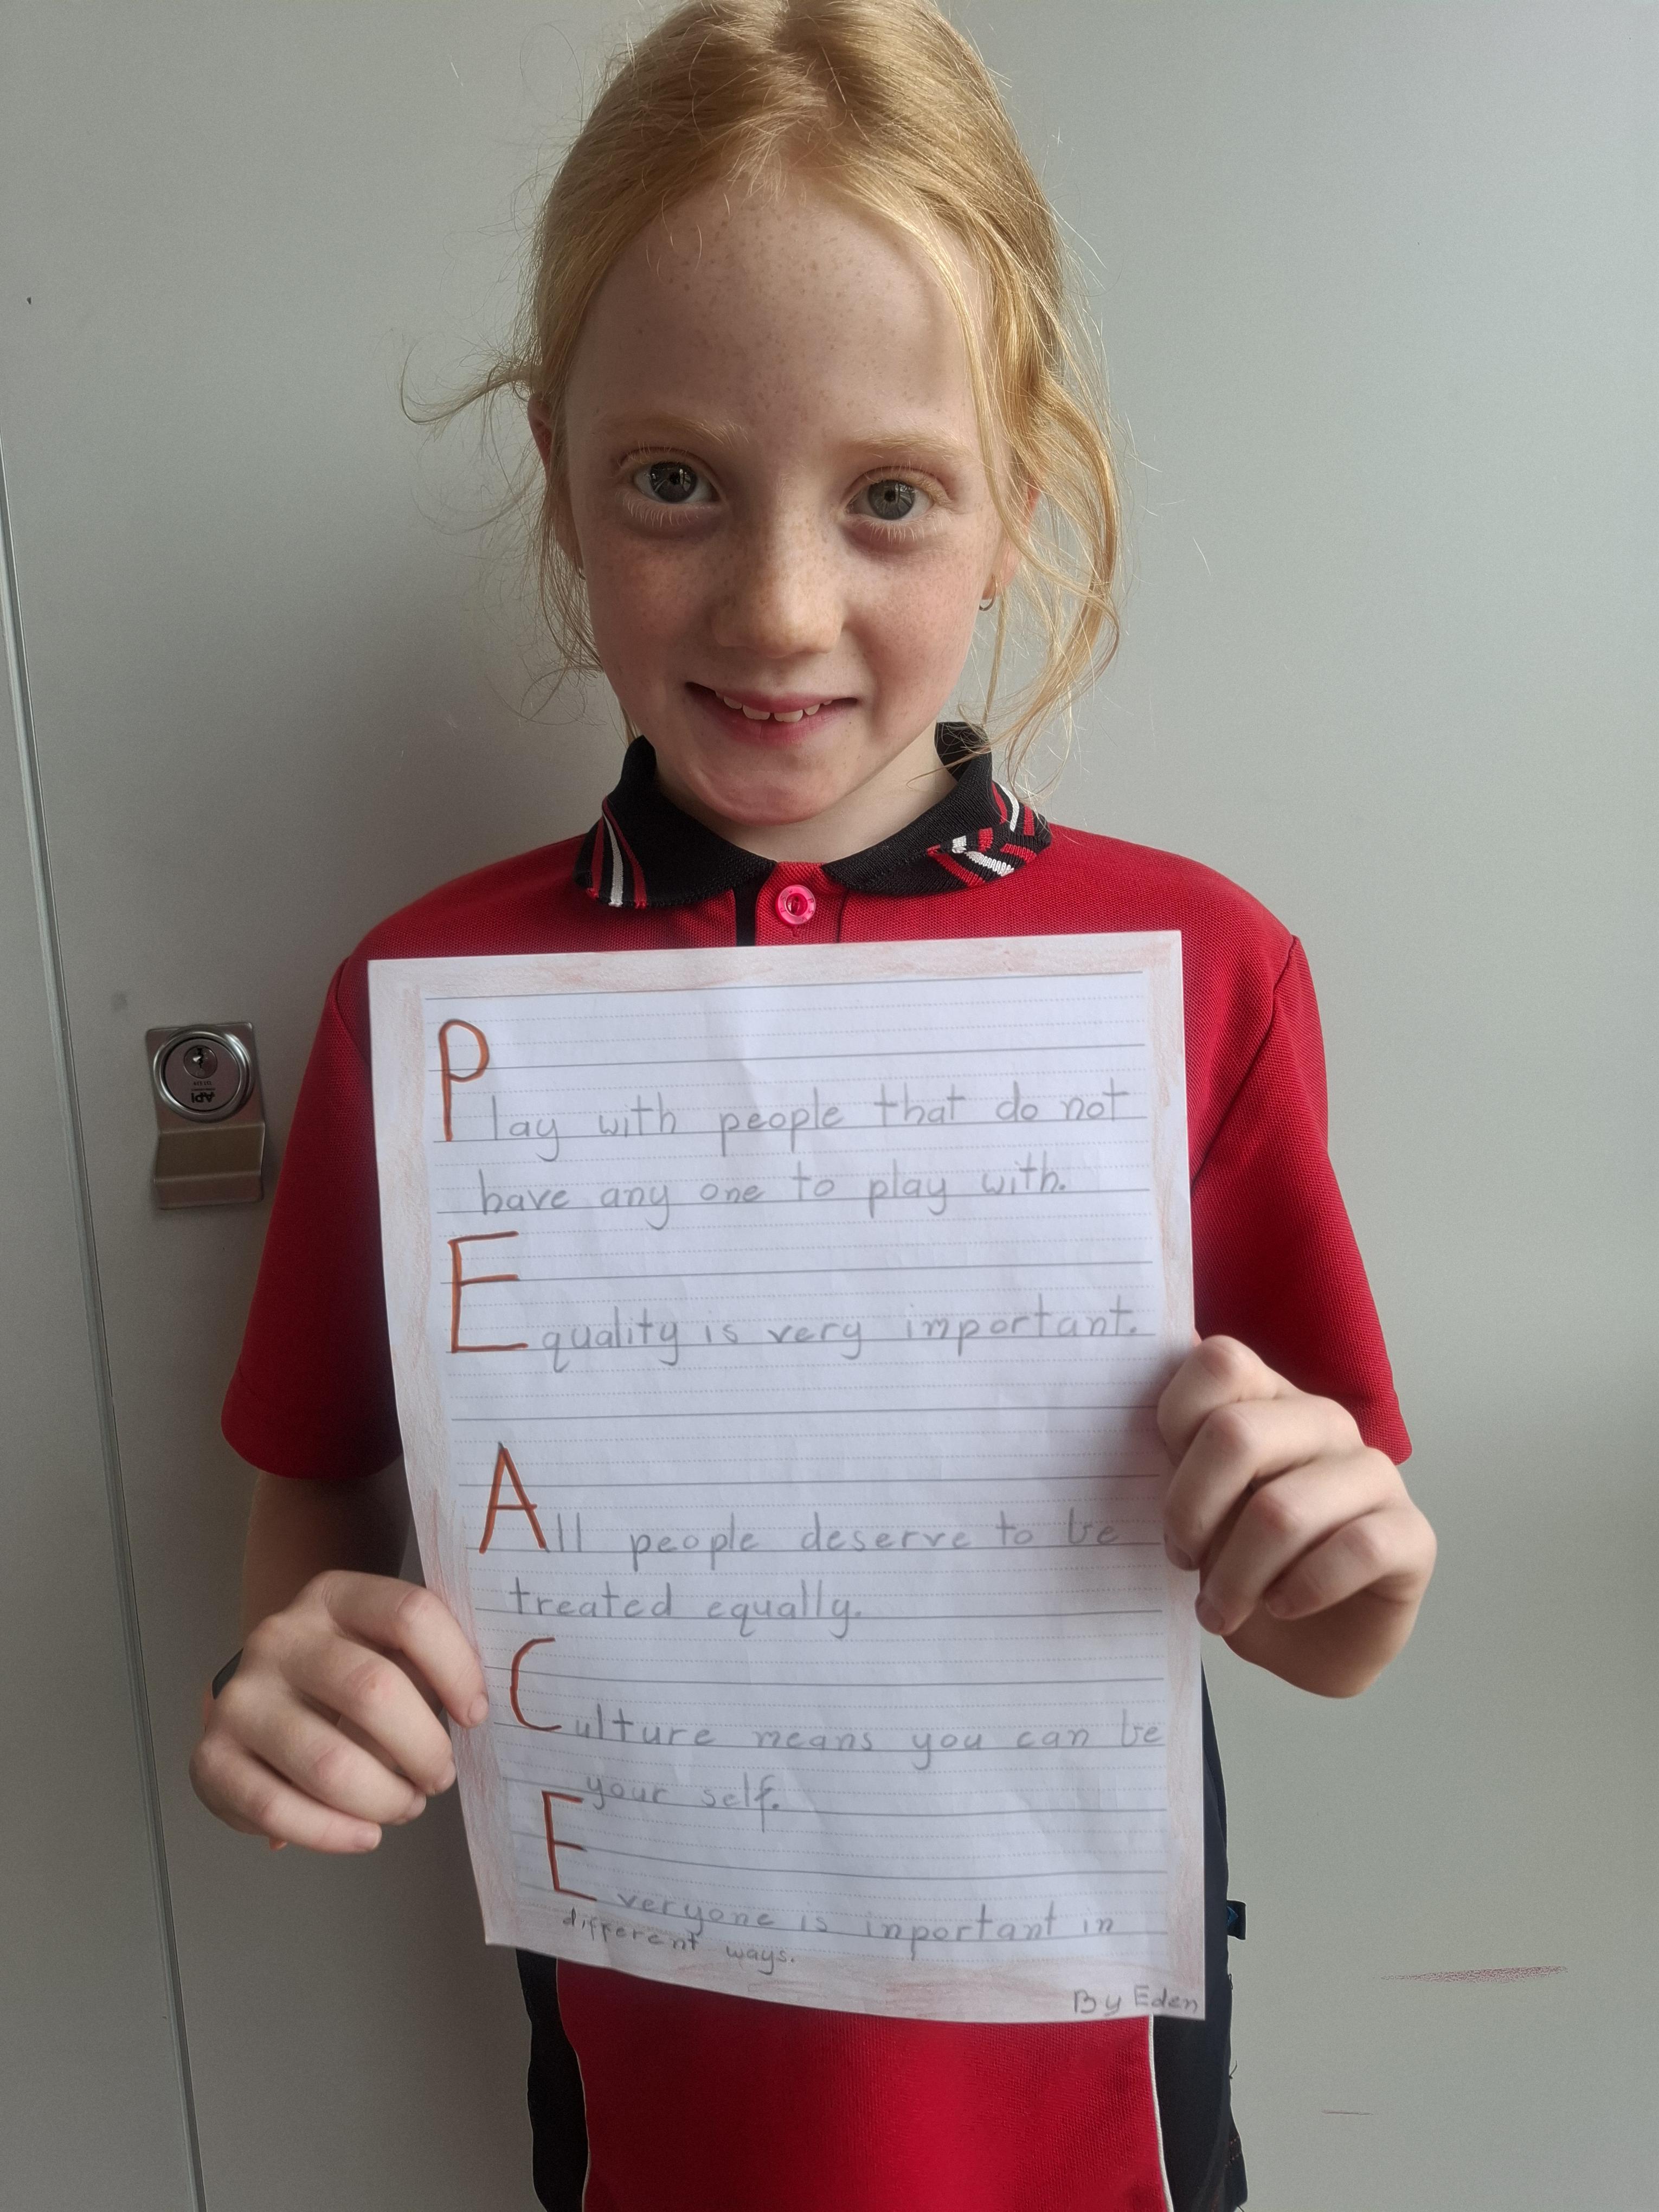 Play with people that do not
have any one to play with.
Equality is very important.
All people deserve to be
treated equally.
Culture means you can be
your self.
Everyone is inportant in
different ways.
By Eden
API